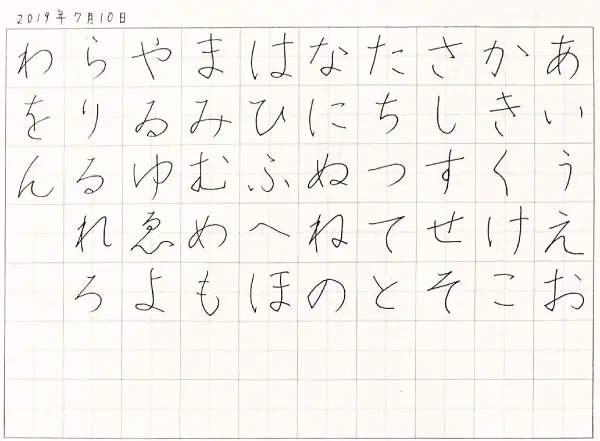 2019年7月10日
あいうえお
かきくけこ
さしすせそ
たちつてと
なにぬねの
はひふへほ
まみむめも
やゐゆゑよ
らりるれろ
わをん